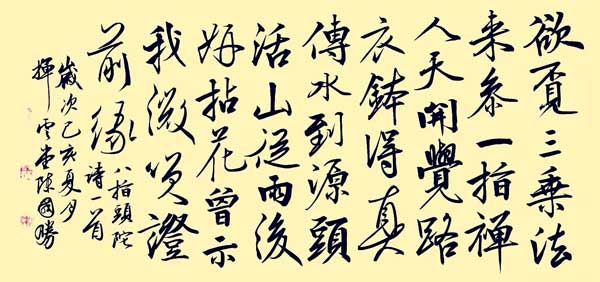 欲覔三乘法
来參一指禪
人天開覺路
衣鉢得真
傳水到源頭
活山從雨後
妍拈花曾示
我微笑證
前緣
八指頭陀
詩一首
歲次己亥夏月
雲堂陳國勝